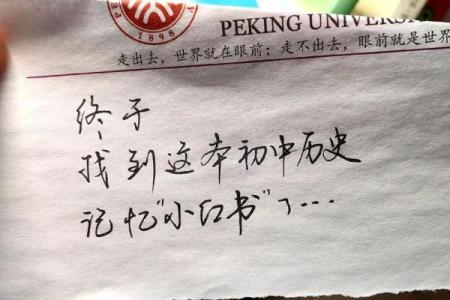 1898
PEKING UNIVERS
走出去，世界就在眼前；走不出去，眼前就是世界
终于
找到这本初中历史
记忆"小红书"了...